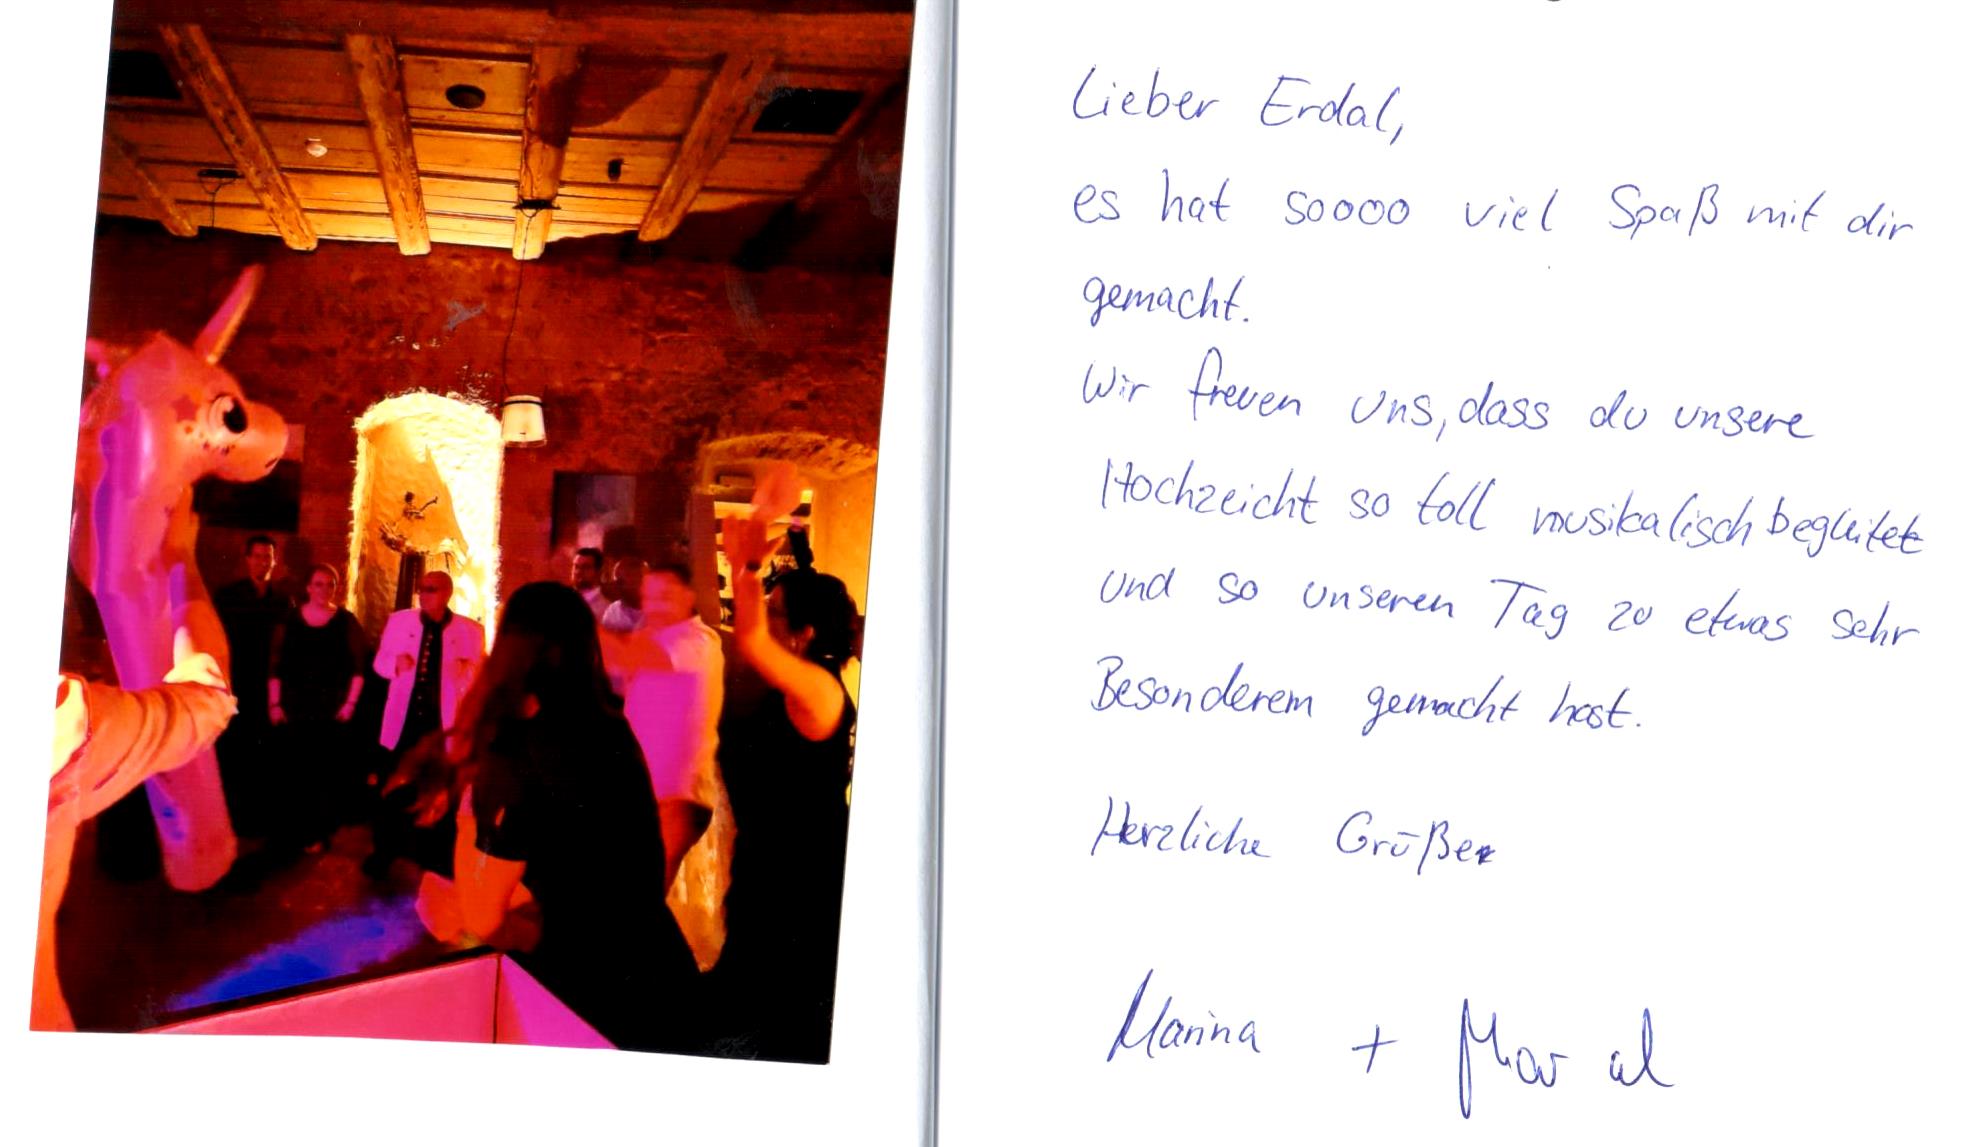 Lieber Erdal,
es hat soooo viel Spaß mit dir
gemacht.
Wir freuen uns, dass du unsere
Hochzeicht so toll musikalisch begleitet
und so unseren Tag zu etwas sehr
Besonderem gemacht hast.
Herzliche Grüße
Marina +